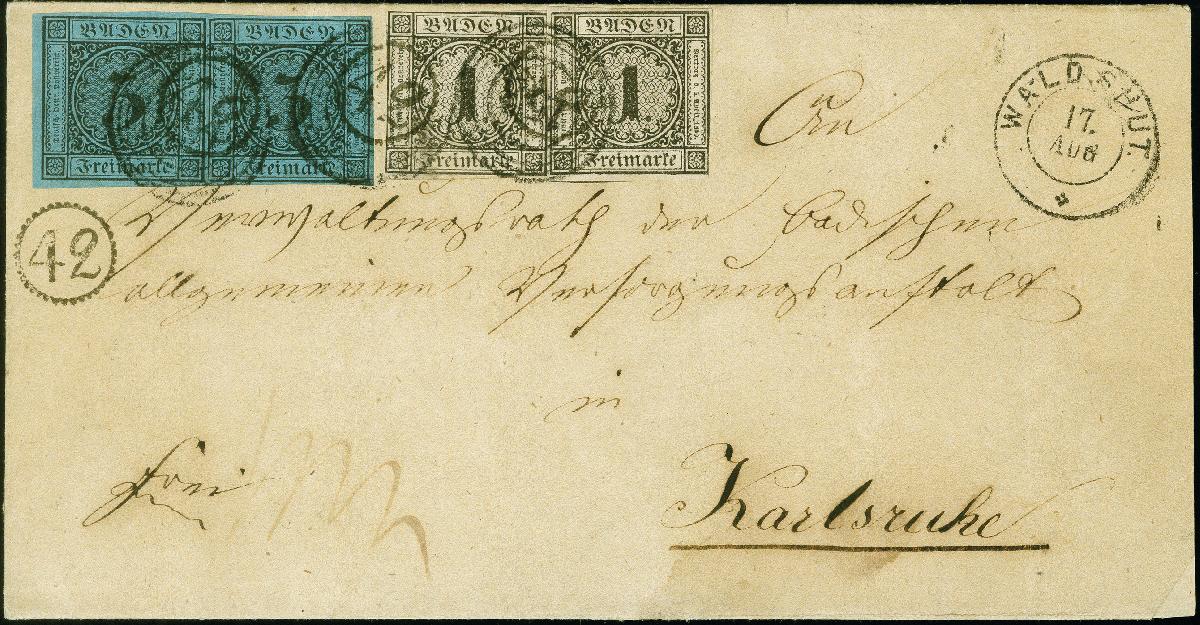 BADEN BADEN BADEN BADEN
3 3 1 1
Freimarke Freimarke Freimarke Freimarke
WALDSHUT.
17.
AUG
42
An
Verwaltungsrath der Badischen
allgemeinen Versorgungsanstalt
in
frei
Karlsruhe